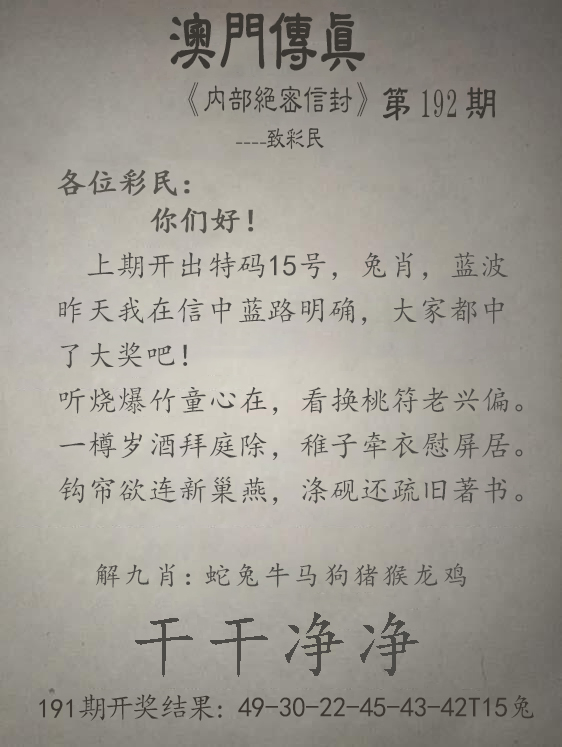 澳門傳眞
《内部絕密信封》第192期
----致彩民
各位彩民：
你们好！
上期开出特码15号，兔肖，蓝波
昨天我在信中蓝路明确，大家都中
了大奖吧！
听烧爆竹童心在，看换桃符老兴偏。
一樽岁酒拜庭除，稚子牵衣慰屏居。
钩帘欲连新巢燕，涤砚还疏旧著书。
解九肖：蛇兔牛马狗猪猴龙鸡
干干净净
191期开奖结果：49-30-22-45-43-42T15兔